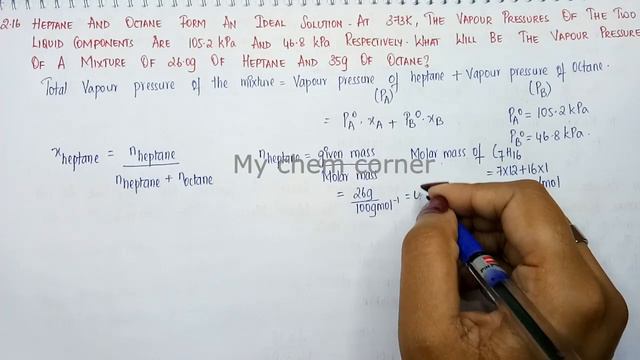 2.16 HEPTANE AND OCTANE FORM AN IDEAL SOLUTION. AT 373K, THE VAPOUR PRESSURES OF THE TWO
LIQUID COMPONENTS ARE 105.2 kPa AND 46.8 kPa RESPECTIVELY. WHAT WILL BE THE VAPOUR PRESSURE
OF A MIXTURE OF 26.0g OF HEPTANE AND 35g OF OCTANE?
Total Vapour pressure of the mixture = Vapour pressure of heptane + Vapour pressure of Octane.
(PA) (PB)
= PA°. xA + PB°. xB
PA° = 105.2 kPa
PB° = 46.8 kPa.
xheptane = nheptane
nheptane + noctane
nheptane = given mass
Molar mass
= 26g
100gmol⁻¹ =
Molar mass of C7H16
= 7x12+16x1
mol
My chem corner